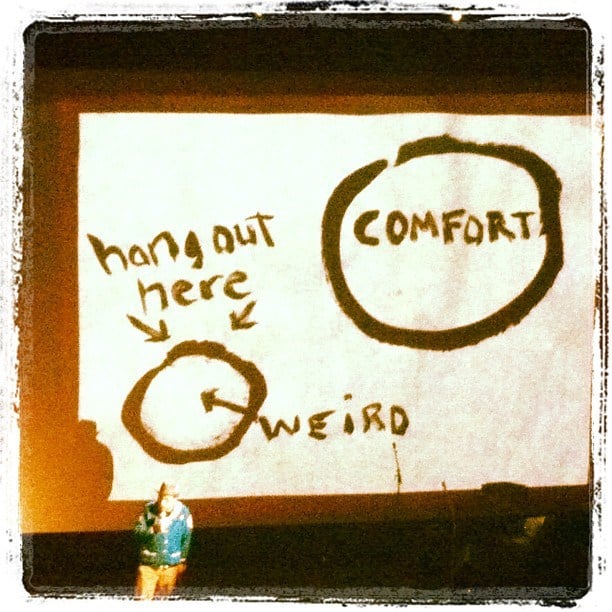 COMFORT
hang out
here
WEIRD